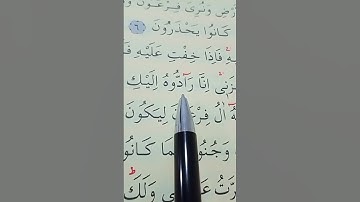 رْضِ وَنُرِىَ فِرْعَوْنَ وَ
كَانُوا يَحْذَرُونَ ٦
فَإِذَا خِفْتِ عَلَيْهِ فَ
زَنِى إِنَّا رَآدُّوهُ إِلَيْكِ
هُ آلُ فِرْعَ نَ لِيَكُونَ
وَجُنُو مَا كَانُوا
رَّتُ عَ ى وَلَكَ